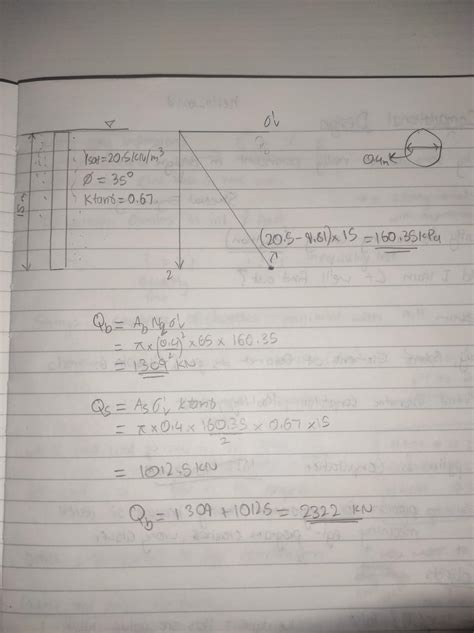 σv'
15m
γsat = 20.5 kN/m³
Ø = 35°
Ktanδ = 0.67
0.4m
(20.5 - 9.81) x 15 = 160.35 kPa
z
Qb = Ab Nq σv'
= π x (0.4/2)² x 65 x 160.35
= 1309 KN
Qs = As σv' Ktanδ
= π x 0.4 x 160.35/2 x 0.67 x 15
= 1012.5 KN
Qb = 1309 + 1012.5 = 2322 KN